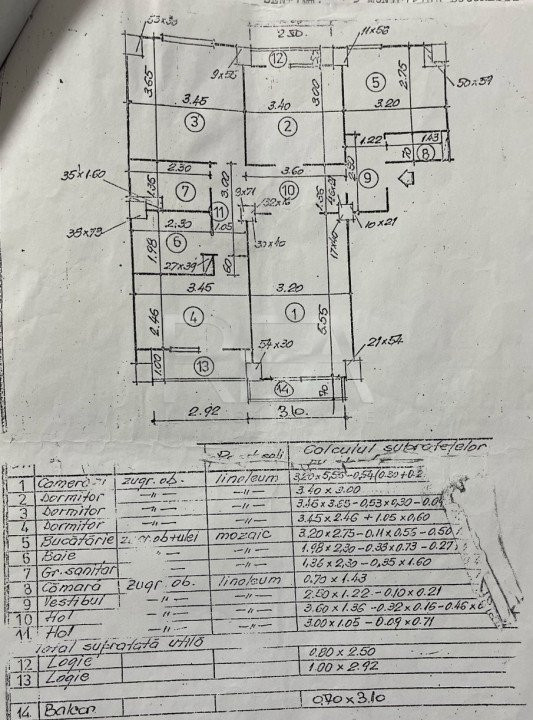 53x30
2.50
11x56
9x56
12
5
2.75
3.65
3.00
50x59
3.45
3.40
3.20
3
2
1.22
1.43
8
70
35x1.60
2.30
3.60
9
7
1.35
3.00
9x71
10
11
10x21
35x73
2.30
1.05
6
1.98
27x39
30x40
60
3.45
3.20
2.46
4
1
5.55
54x30
21x54
1.00
13
14
70
2.92
3.10
Calculul suprafețelor
1 Camera zi zugr. ob. linoleum 3.20 x 5.55 - 0.54(0.30 + 0.2
2 Dormitor -"- -"- 3.40 x 3.00
3 Dormitor -"- -"- 3.45 x 3.65 - 0.53 x 0.30 - 0.0
4 Dormitor -"- -"- 3.45 x 2.46 + 1.05 x 0.60
5 Bucătărie mozaic 3.20 x 2.75 - 0.11 x 0.56 - 0.50
6 Baie -"- -"- 1.98 x 2.30 - 0.35 x 0.73 - 0.27
7 Gr. sanitar -"- -"- 1.36 x 2.30 - 0.35 x 1.60
8 Cămară zugr. ob. linoleum 0.70 x 1.43
9 Vestibul -"- -"- 2.50 x 1.22 - 0.10 x 0.21
10 Hol -"- -"- 3.60 x 1.36 - 0.32 x 0.16 - 0.46 x 0
11 Hol -"- -"- 3.00 x 1.05 - 0.09 x 0.71
Total suprafață utilă
12 Logie 0.80 x 2.50
13 Logie 1.00 x 2.92
14 Balcon 0.70 x 3.10